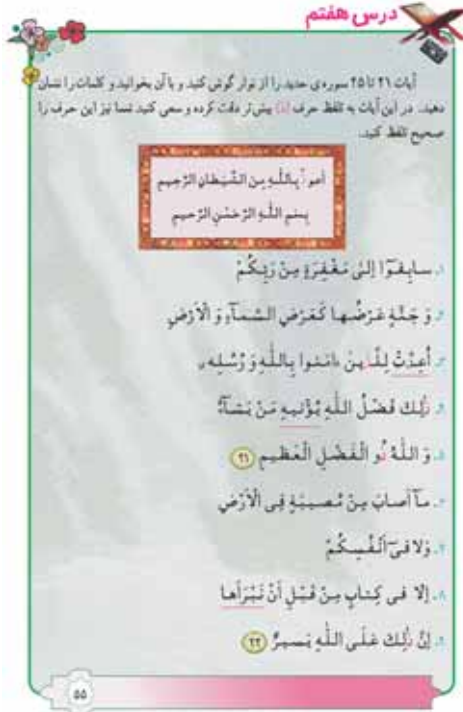 درس هفتم
آیات ۲۱ تا ۲۵ سوره‌ی حدید را از نوار گوش کنید و با آن بخوانید و کلمات را نشان
دهید. در این آیات به تلفظ حرف (ذ) بیش‌تر دقت کرده و سعی کنید شما نیز این حرف را
صحیح تلفظ کنید.
اَعوذُ بِاللّٰهِ مِنَ الشَّیطانِ الرَّجیمِ
بِسمِ اللّٰهِ الرَّحمٰنِ الرَّحیمِ
۱. سابِقوٓا اِلیٰ مَغْفِرَةٍ مِنْ رَبِّکُمْ
۲. وَ جَنَّةٍ عَرْضُها کَعَرْضِ السَّمآءِ وَ الْاَرْضِ
۳. اُعِدَّتْ لِلَّذینَ ءامَنوا بِاللّٰهِ وَ رُسُلِهٖ
۴. ذٰلِكَ فَضْلُ اللّٰهِ یُؤْتیهِ مَنْ یَشآءُ
۵. وَ اللّٰهُ ذُو الْفَضْلِ الْعَظیمِ ۲۱
۶. مآ اَصابَ مِنْ مُصیبَةٍ فِی الْاَرْضِ
۷. وَلا فیٓ اَنْفُسِکُمْ
۸. اِلّا فی کِتابٍ مِنْ قَبْلِ اَنْ نَبْرَاَها
۹. اِنَّ ذٰلِكَ عَلَی اللّٰهِ یَسیرٌ ۲۲
۵۵